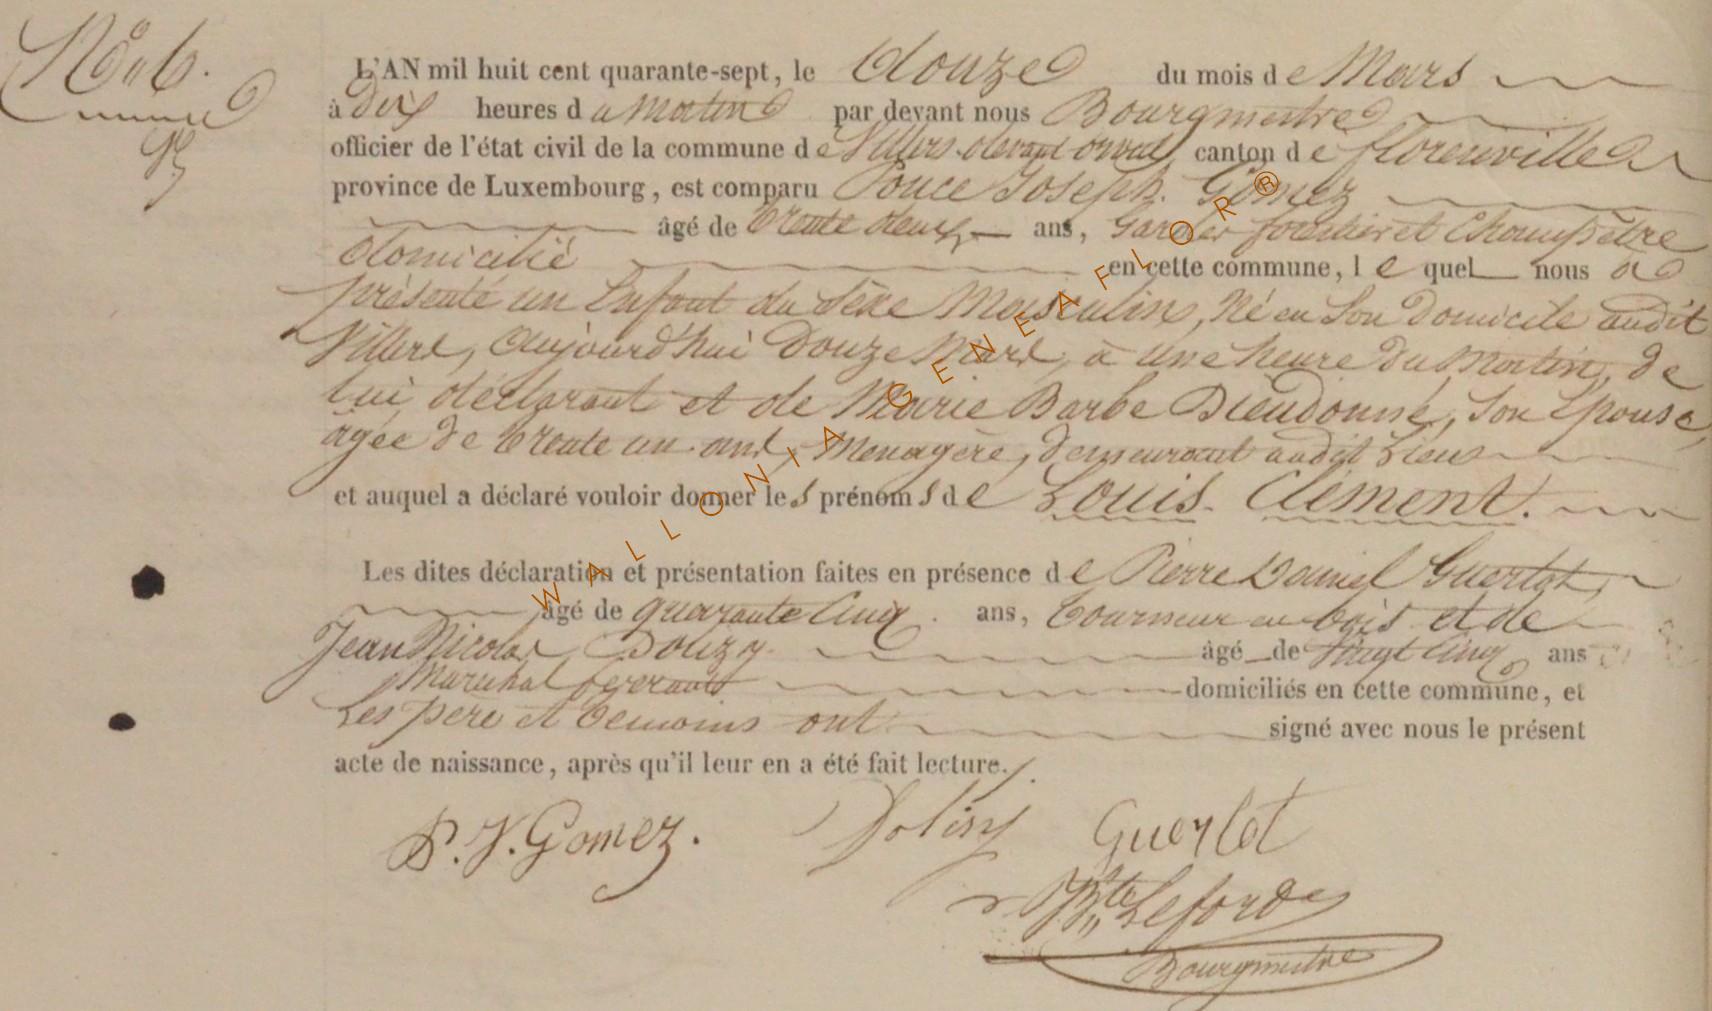 N° 6.
L'AN mil huit cent quarante-sept, le douze du mois de Mars
à dix heures du Matin par devant nous Bourgmestre
officier de l'état civil de la commune de Villers devant orval, canton de florenville
province de Luxembourg, est comparu Ponce Joseph Gomez
âgé de trente deux ans, Garde forestier et Champêtre
domicilié en cette commune, lequel nous a
présenté un Enfant du Sexe Masculin, Né en Son Domicile audit
Villers, aujourd'hui Douze Mars, à une heure du Matin, de
lui déclarant et de Marie Barbe Dieudonné, Son Epouse,
âgée de trente un ans, Menagère, demeurant audit Lieu
et auquel a déclaré vouloir donner les prénoms de Louis Clément.
Les dites déclaration et présentation faites en présence de Pierre Daniel Guerlot,
âgé de quarante Cinq ans, tourneur en bois et de
Jean Nicolas âgé de Vingt Cinq ans
Maréchal ferrant domiciliés en cette commune, et
Les père et temoins ont signé avec nous le présent
acte de naissance, après qu'il leur en a été fait lecture.
P. J. Gomez. Guerlot
Leforde
Bourgmestre
WALLONIA GENEAFLOR ®